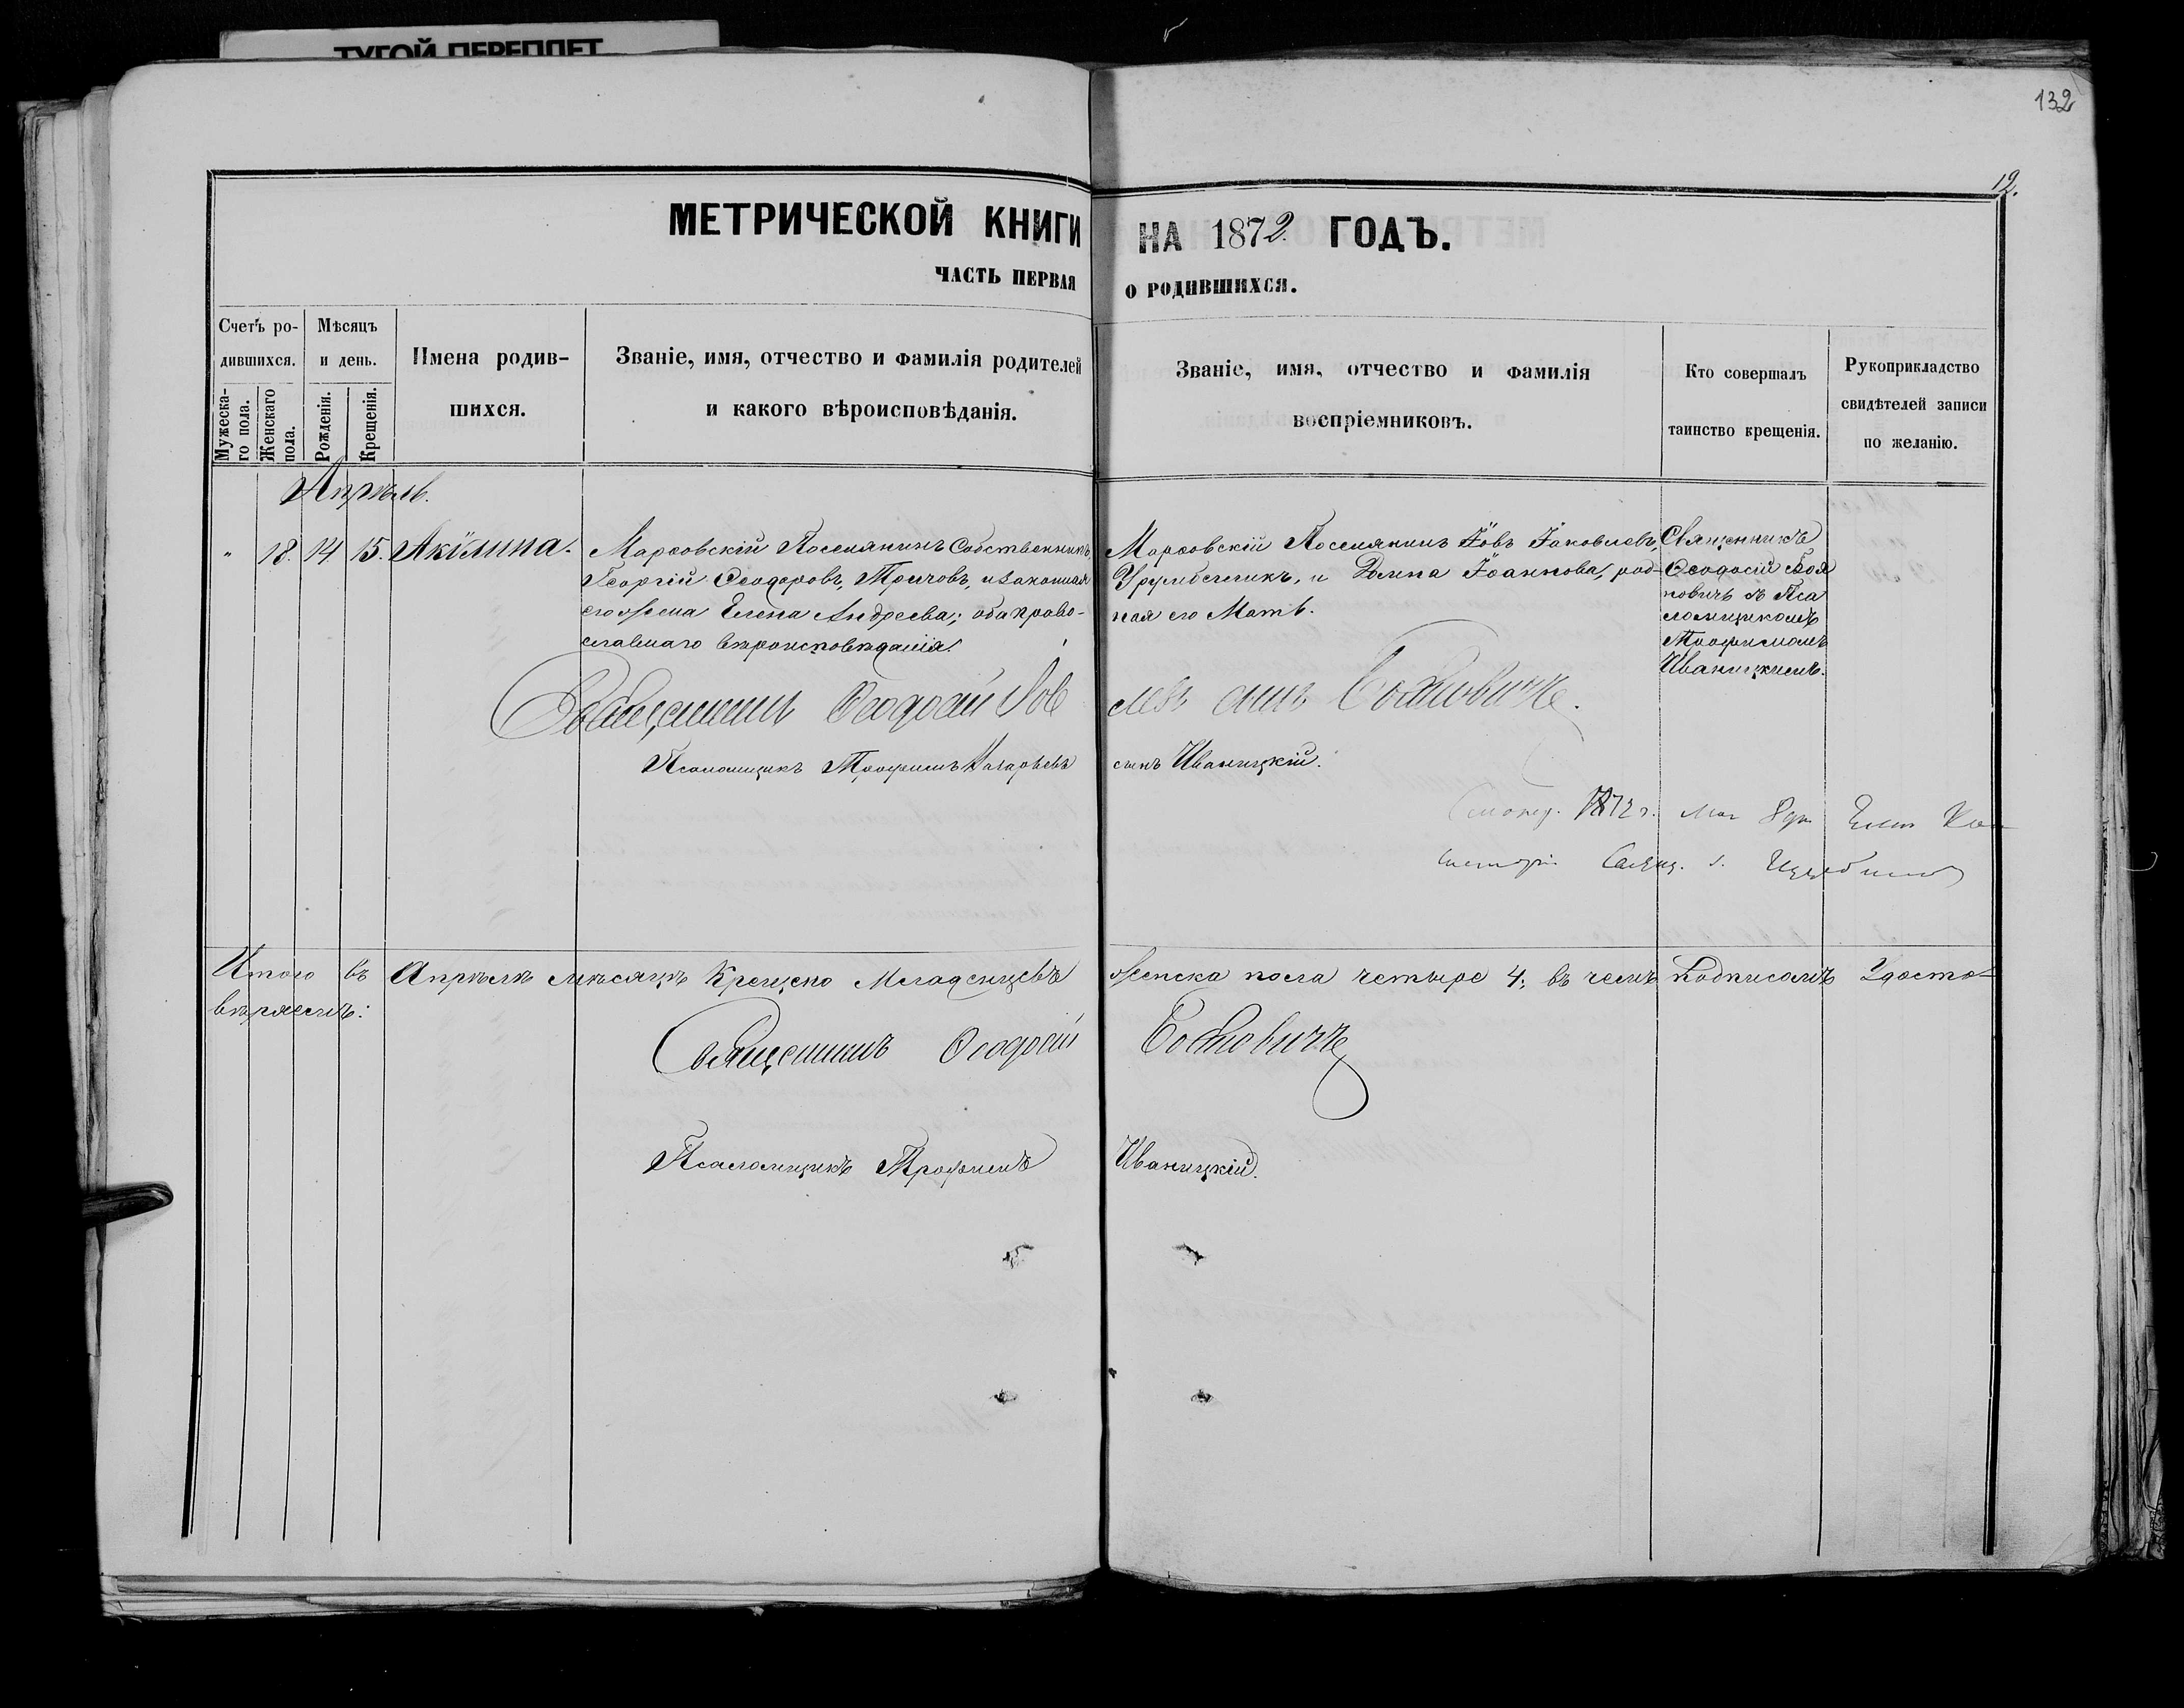 ТУГОЙ ПЕРЕПЛЕТ
132
12.
МЕТРИЧЕСКОЙ КНИГИ НА 1872 ГОДЪ.
ЧАСТЬ ПЕРВАЯ О РОДИВШИХСЯ.
Счетъ ро-
дившихся.
Мужеска-
го пола.
Женскаго
пола.
Мѣсяцъ
и день.
Рожденія.
Крещенія.
Имена родив-
шихся.
Званіе, имя, отчество и фамилія родителей
и какого вѣроисповѣданія.
Званіе, имя, отчество и фамилія
воспріемниковъ.
Кто совершалъ
таинство крещенія.
Рукоприкладство
свидѣтелей записи
по желанію.
Апрѣль.
" 18. 14. 15. Акiлина.
Поселянинъ Собственникъ
Георгій Ѳеодоровъ, и законная
его жена Елена Андреева; оба право-
славнаго вѣроисповѣданія.
Поселянинъ Іовъ Іаковлевъ,
и Домна Іоаннова, род-
ная его Мать.
Священникъ
Ѳеодосій Боя
новичъ съ Пса
ломщикомъ
Трофимомъ
Иваницкимъ.
Священникъ Ѳеодосій
Псаломщикъ Трофимъ сынъ Иваницкій.
1872 г.
Итого въ Апрѣлѣ мѣсяцѣ Крещено Младенцевъ женска пола четыре 4; въ чемъ подписомъ Удосто-
вѣряемъ:
Священникъ Ѳеодосій Бояновичъ
Псаломщикъ Трофимъ Иваницкій.